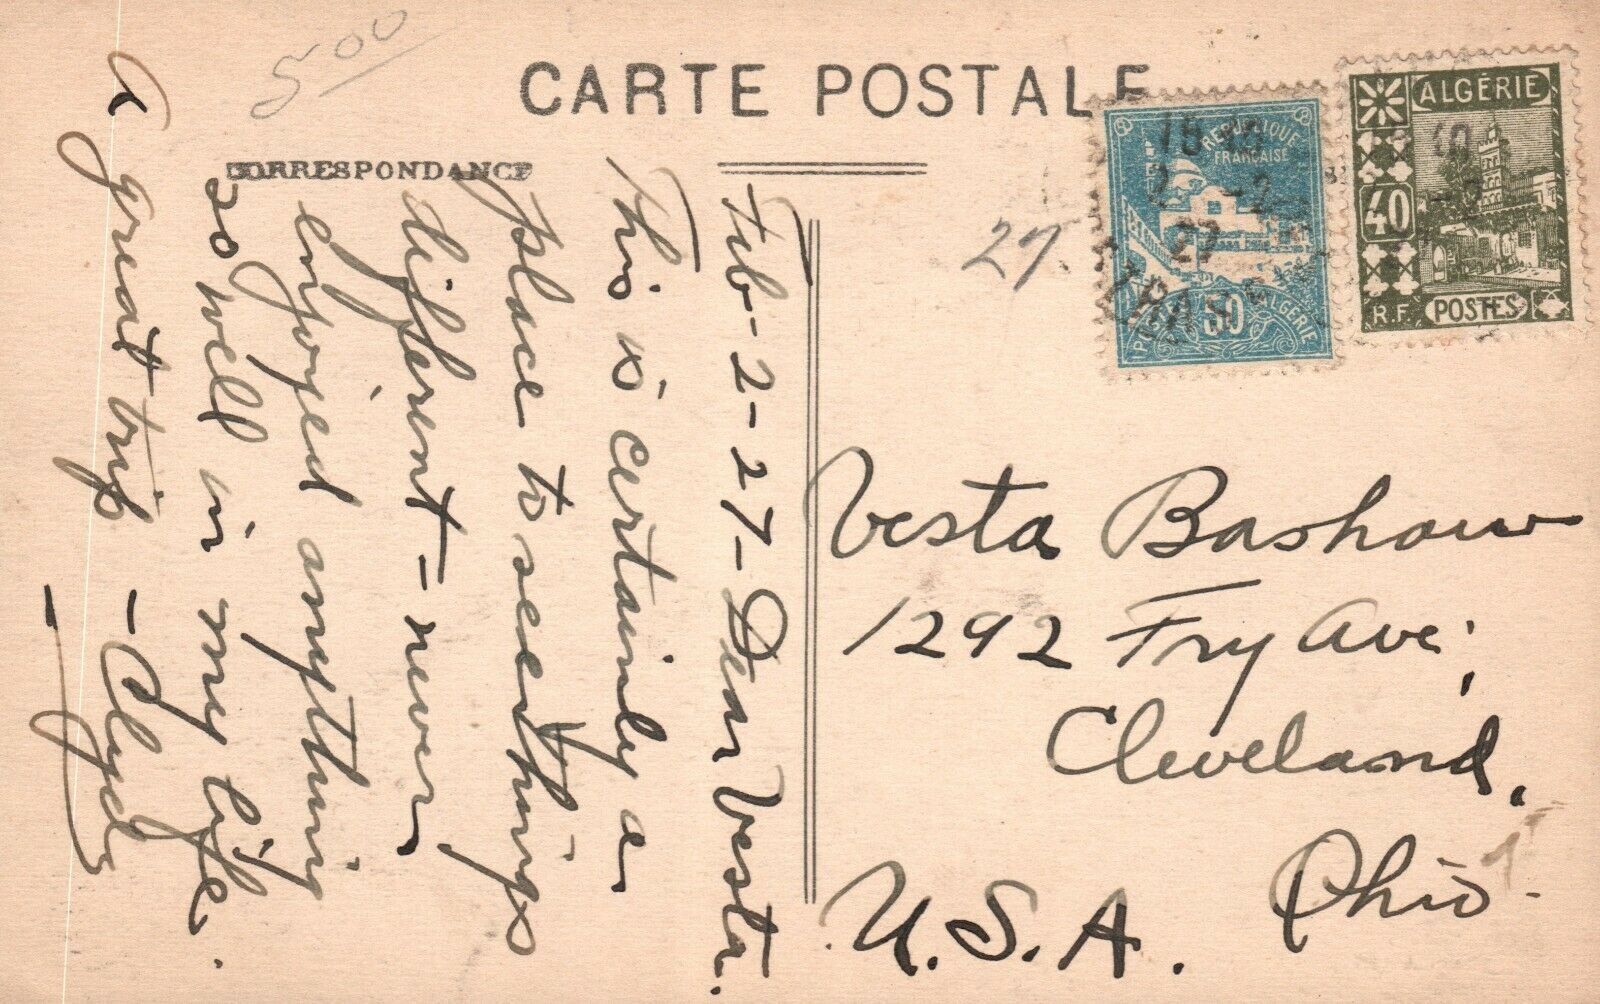 5-00
CARTE POSTALE
CORRESPONDANCE
Feb-2-27-Dear Vesta.
This is certainly a
place to see things
different - never
enjoyed anything
so well in my life.
A great trip
- Clyde
27.
REPUBLIQUE
FRANCAISE
50
ALGÉRIE
2 -2
27
ALGÉRIE
40
R.F. POSTES
Vesta Bashow
1292 Fry Ave;
Cleveland,
Ohio-
U.S.A.